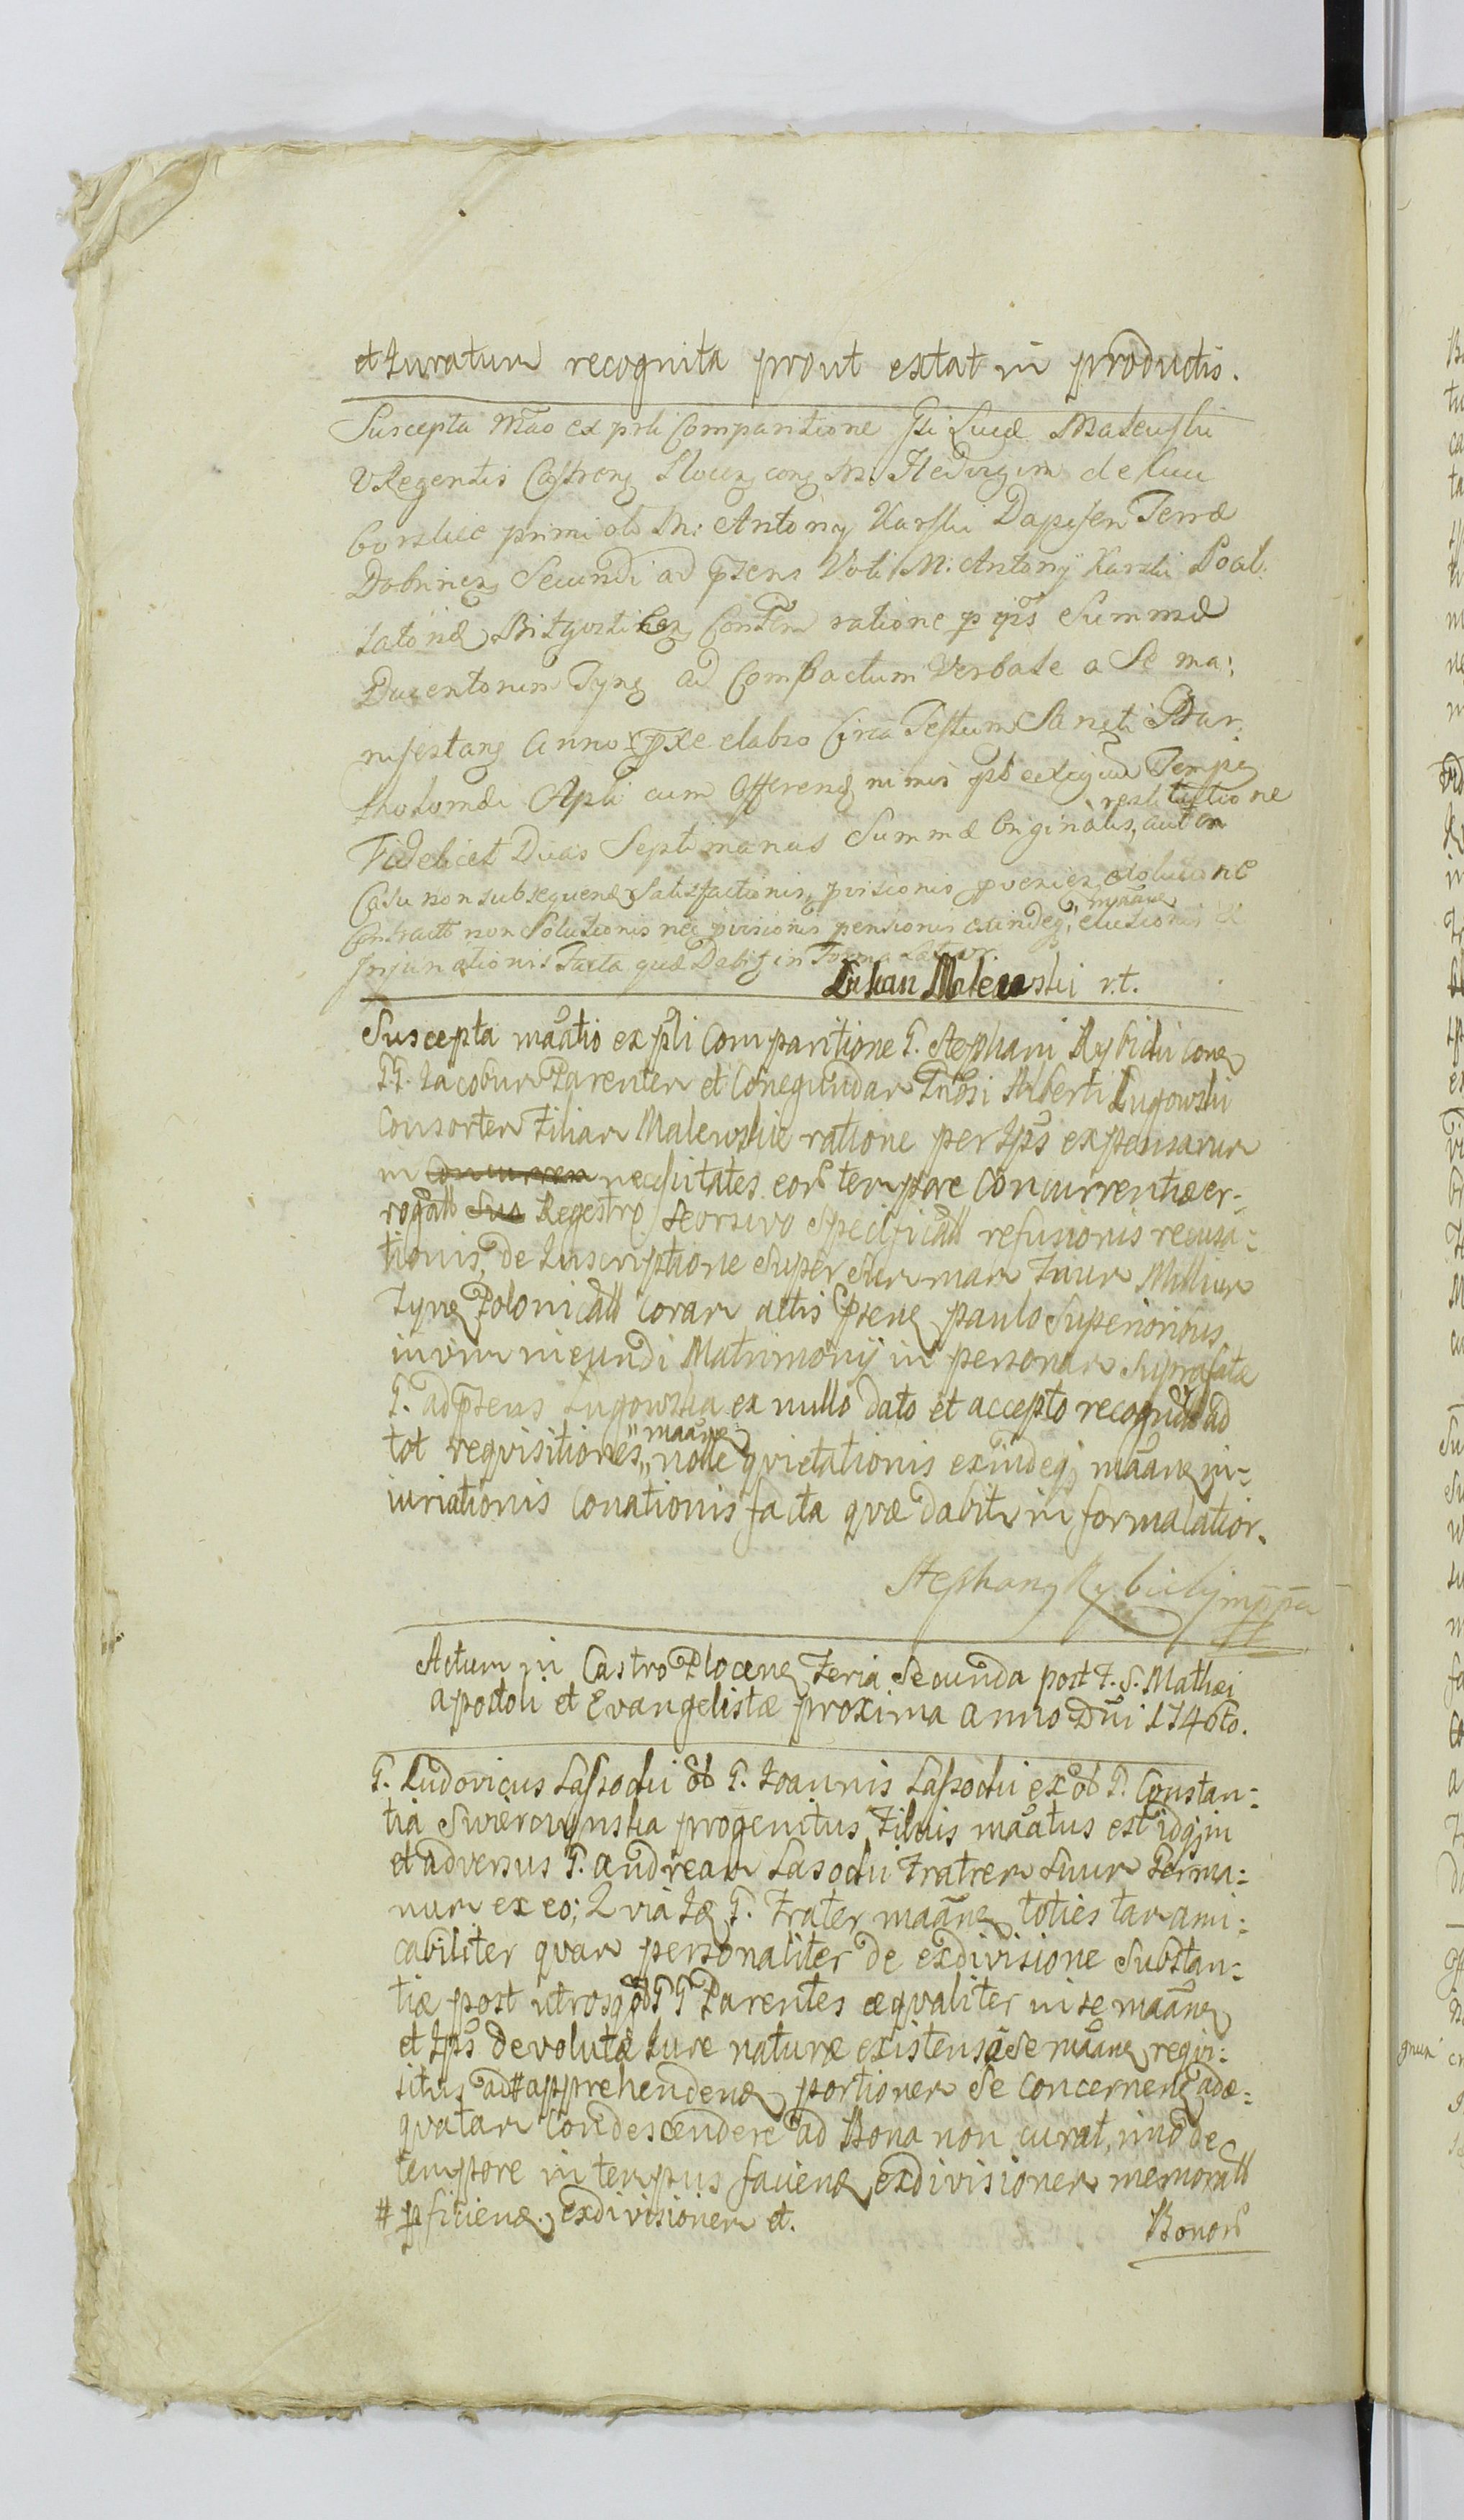 et Juratum recognita prout extat in productis.
Suscepta Mãao ex prli Comparitione Gsi Lucæ Malewski
VRegentis Castren Plocen con M. Hedvigim de
Gorskie primi olim M: Antonÿ Karski Dapiferi Terræ
Dobrinen Secundi ad psens Voti M: Antonij Karski
ratione p ips Summæ
Ducentorum Tyn ad Compactum Verbale a Se ma:
nifestan Anno pxe elabso Circa Festum Sancti Bar:
tholomæi Apli cum Offeren nimis Temp
Videlicet Duas Septimanas Summæ Originalis, restitutione aut in
Casu non subsequen Satisfactionis, provisionis exolutione
Contract non Solutionis nec provisionis pensionis exindeq; mããne elusionis et
Injuriationis Facta quæ Dabit in Forma Latior.
Lukan Malewski r.t.
Suscepta mãatio ex prli Comparitione G. Stephani Rybicki con
GG. Jacobum Parentem et Conegundam Gnosi Alberti Lugowski
Consortem Filiam Malewskie ratione per Ips expensarum
in Concurren necessitates eor tempore Concurrentiæ er-
rogatt Sua Regestro seorsivo Specificatt refusionis recusa:
tionis, de Inscriptione Super Summam Millium
Tyn Polonicatt Coram actis psen paulo Superioribus
in vim ineundi Matrimonÿ in personam Suprafatæ
G. ad psens Lugowska ex nullo dato et accepto recognitt ad
tot requisitiones " mããne " nolle quietationis exindeq; mããne in:
iuriationis Conationis facta quæ dabitur in forma latior.
Stephan Rybicky mppa
Actum in Castro Plocen Feria Secunda post F. S. Mathæi
Apostoli et Evangelistæ proxima Anno Dñi 1746to.
G. Ludovicus Lassocki olim G. Joannis Lassocki ex olim G. Constan:
tia Swiercynska progenitus Filius mãatus est idq; in
et adversus G. Andream Lasocki Fratrem Suum Germa:
num ex eo; Quia Is G. Frater mããne toties tam ami:
cabiliter quam personaliter de exdivisione Substan:
tiæ post utrosq; olim GG Parentes æqualiter in se mããne
et Ips devolutæ Jure naturæ existens a Se mããne requi:
situs ad # apprehenden portionem Se Concernen adæ:
quatam Condescendere ad Bona non curat, imo de
tempore in tempus facien exdivisionem memoratt
# pficien exdivisionem et.
Bonor